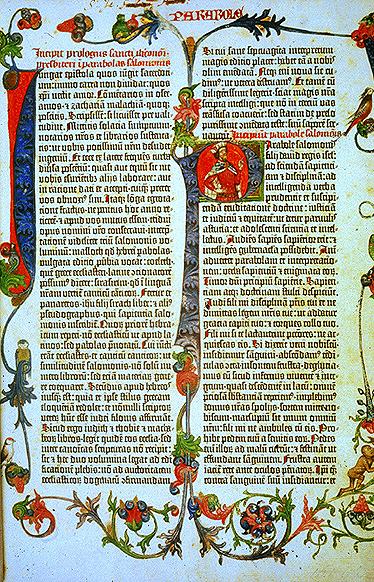 PARABOLE
Incipit prologus sancti iheronimi
presbiteri i parabolas salomonis
iungat epistola quos iũgit sacerdotiũ:
immo carta non dividat: quos
xp̃i nectit amor. Cõmẽtarios in osee-
amos-⁊ zachariã malachiã. quoq̃
poscitis. Scripsissẽ: si licuisset pre vali-
tudine. Mittitis solacia sumptuum-
notarios nr̃os ⁊ librarios sustenta-
tis: ut vobis potissimũ nr̃m desudet
ingeniũ. Et ecce ex latere frequẽs turba
diversa poscẽtiũ: quasi aut equũ sit me
vobis esuriẽtib9 aliis laborare: aut
in ratione dati et accepti-cuiq̃ preter
vos obnoxi9 sim. Itaq̃ lõga egrota-
tione fractus-ne penitus hoc anno re-
ticerẽ-⁊ apud vos mutus essem-tridui
opus nomini vr̃o consecravi-interp̃-
tationẽ videlicet triũ salomonis vo-
luminũ: masloth qd̃ hebrei parabolas-
vulgata editio p̃verbia vocat: coeleth-
quẽ grece ecclesiasten-latine ↄcionatorẽ
possum9 dicere: sirasirim-qd̃ i linguã
nr̃am vertit̃ canticũ cãticorũ. Fertur et
panaretos-ihũ filii sirach liber: ⁊ ali9
pseudographus-qui sapientia salo-
monis inscribit̃. Quorũ priorẽ hebra-
icum reperi-nõ ecclesiasticũ ut apud la-
tinos-sed parabolas p̃notatũ. Cui iũcti
erãt ecclesiastes-et canticũ canticorũ: ut si-
militudinẽ salomonis-nõ solũ nu-
mero librorũ-sed etiã materiarũ gene-
re coequaret. Secũdus apud hebreos
nusq̃ est: quia et ipse stilus grecam
eloquẽtiã redolet: et nõnulli scriptorũ
veterũ hũc esse iudei filonis affirmãt.
Sicud ergo iudith ⁊ thobie ⁊ macha-
beorũ libros-legit quidẽ eos ecclesia-sed
inter canoicas scripturas nõ recipit:
sic ⁊ hec duo volumina legat ad edi-
ficationẽ plebis: nõ ad auctoritatem
ecclesiasticorũ dogmatũ ↄfirmandam.
Si cui sane septuaginta interpretum
magis editio placet: habet eã a nobis
olim emẽdatã. Neq̃ eni nova sic cu-
dim9: ut vetera destruam9. Et tamẽ cũ
diligentissime legerit-sciat magis nr̃a
scripta intelligi: que nõ in terciũ vas
trãsfusa coacuerint: sed statim de prelo
purissime ↄmẽdata teste: suũ saporẽ ser-
vaverint. Incipiunt parabole salomonis
Parabole salomonis
filii david regis isrl̃:
ad sciendã sapienti-
am ⁊ disciplinã: ad
intelligenda verba
prudentie et suscipi-
endã eruditationẽ doctrine: iusticiã
et iudiciũ ⁊ equitatẽ: ut detur parvulis
astucia: et adolescenti scientia et intel-
lectus. Audiẽs sapiẽs sapiẽtior erit: ⁊
intelligẽs gubernacula possidebit. Ani-
advertet parabolam et interpretatio-
nem: verba sapientiũ ⁊ enigmata eorũ.
Timor dñi principiũ sapiẽtie. Sapien-
tiam atq̃ doctrinam stulti despiciũt.
Audi fili mi disciplinã pr̃is tui et ne
dimittas legem mr̃is tue: ut addatur
gracia capiti tuo: ⁊ torques collo tuo.
Fili mi si te lactaverint peccatores: ne ac-
quiescas eis. Si dixerint veni nobiscũ-
insidiemur sãguini-abscõdam9 tẽdi-
culas ↄtra insontem frustra-degluti-
amus eũ sicud infernus viventẽ ⁊ inte-
grum-quasi descẽdentẽ in lacũ: omnẽ
preciosã substãtiam reperiem9-implebim9
domos nr̃as spoliis-sortem mitte no-
biscum-marsupiũ sit unum omniũ
nr̃m: fili mi ne ambules cũ eis. Pro-
hibe pedem tuũ a semitis eorũ. Pedes
eni illorũ ad malũ currũt: ⁊ festinãt ut
effundant sanguinem. Frustra autem
iacit̃ rete ante oculos pẽnatorũ. Ipi q̃
contra sanguinẽ suũ insidiantur: et